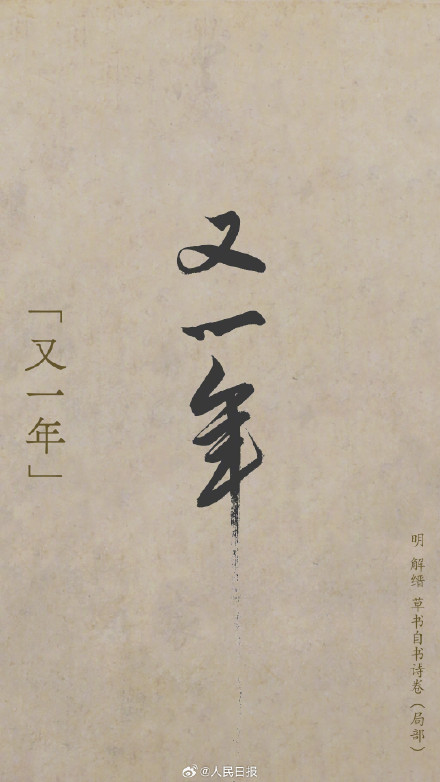 又一年
「又一年」
明 解缙 草书自书诗卷（局部）
@人民日报